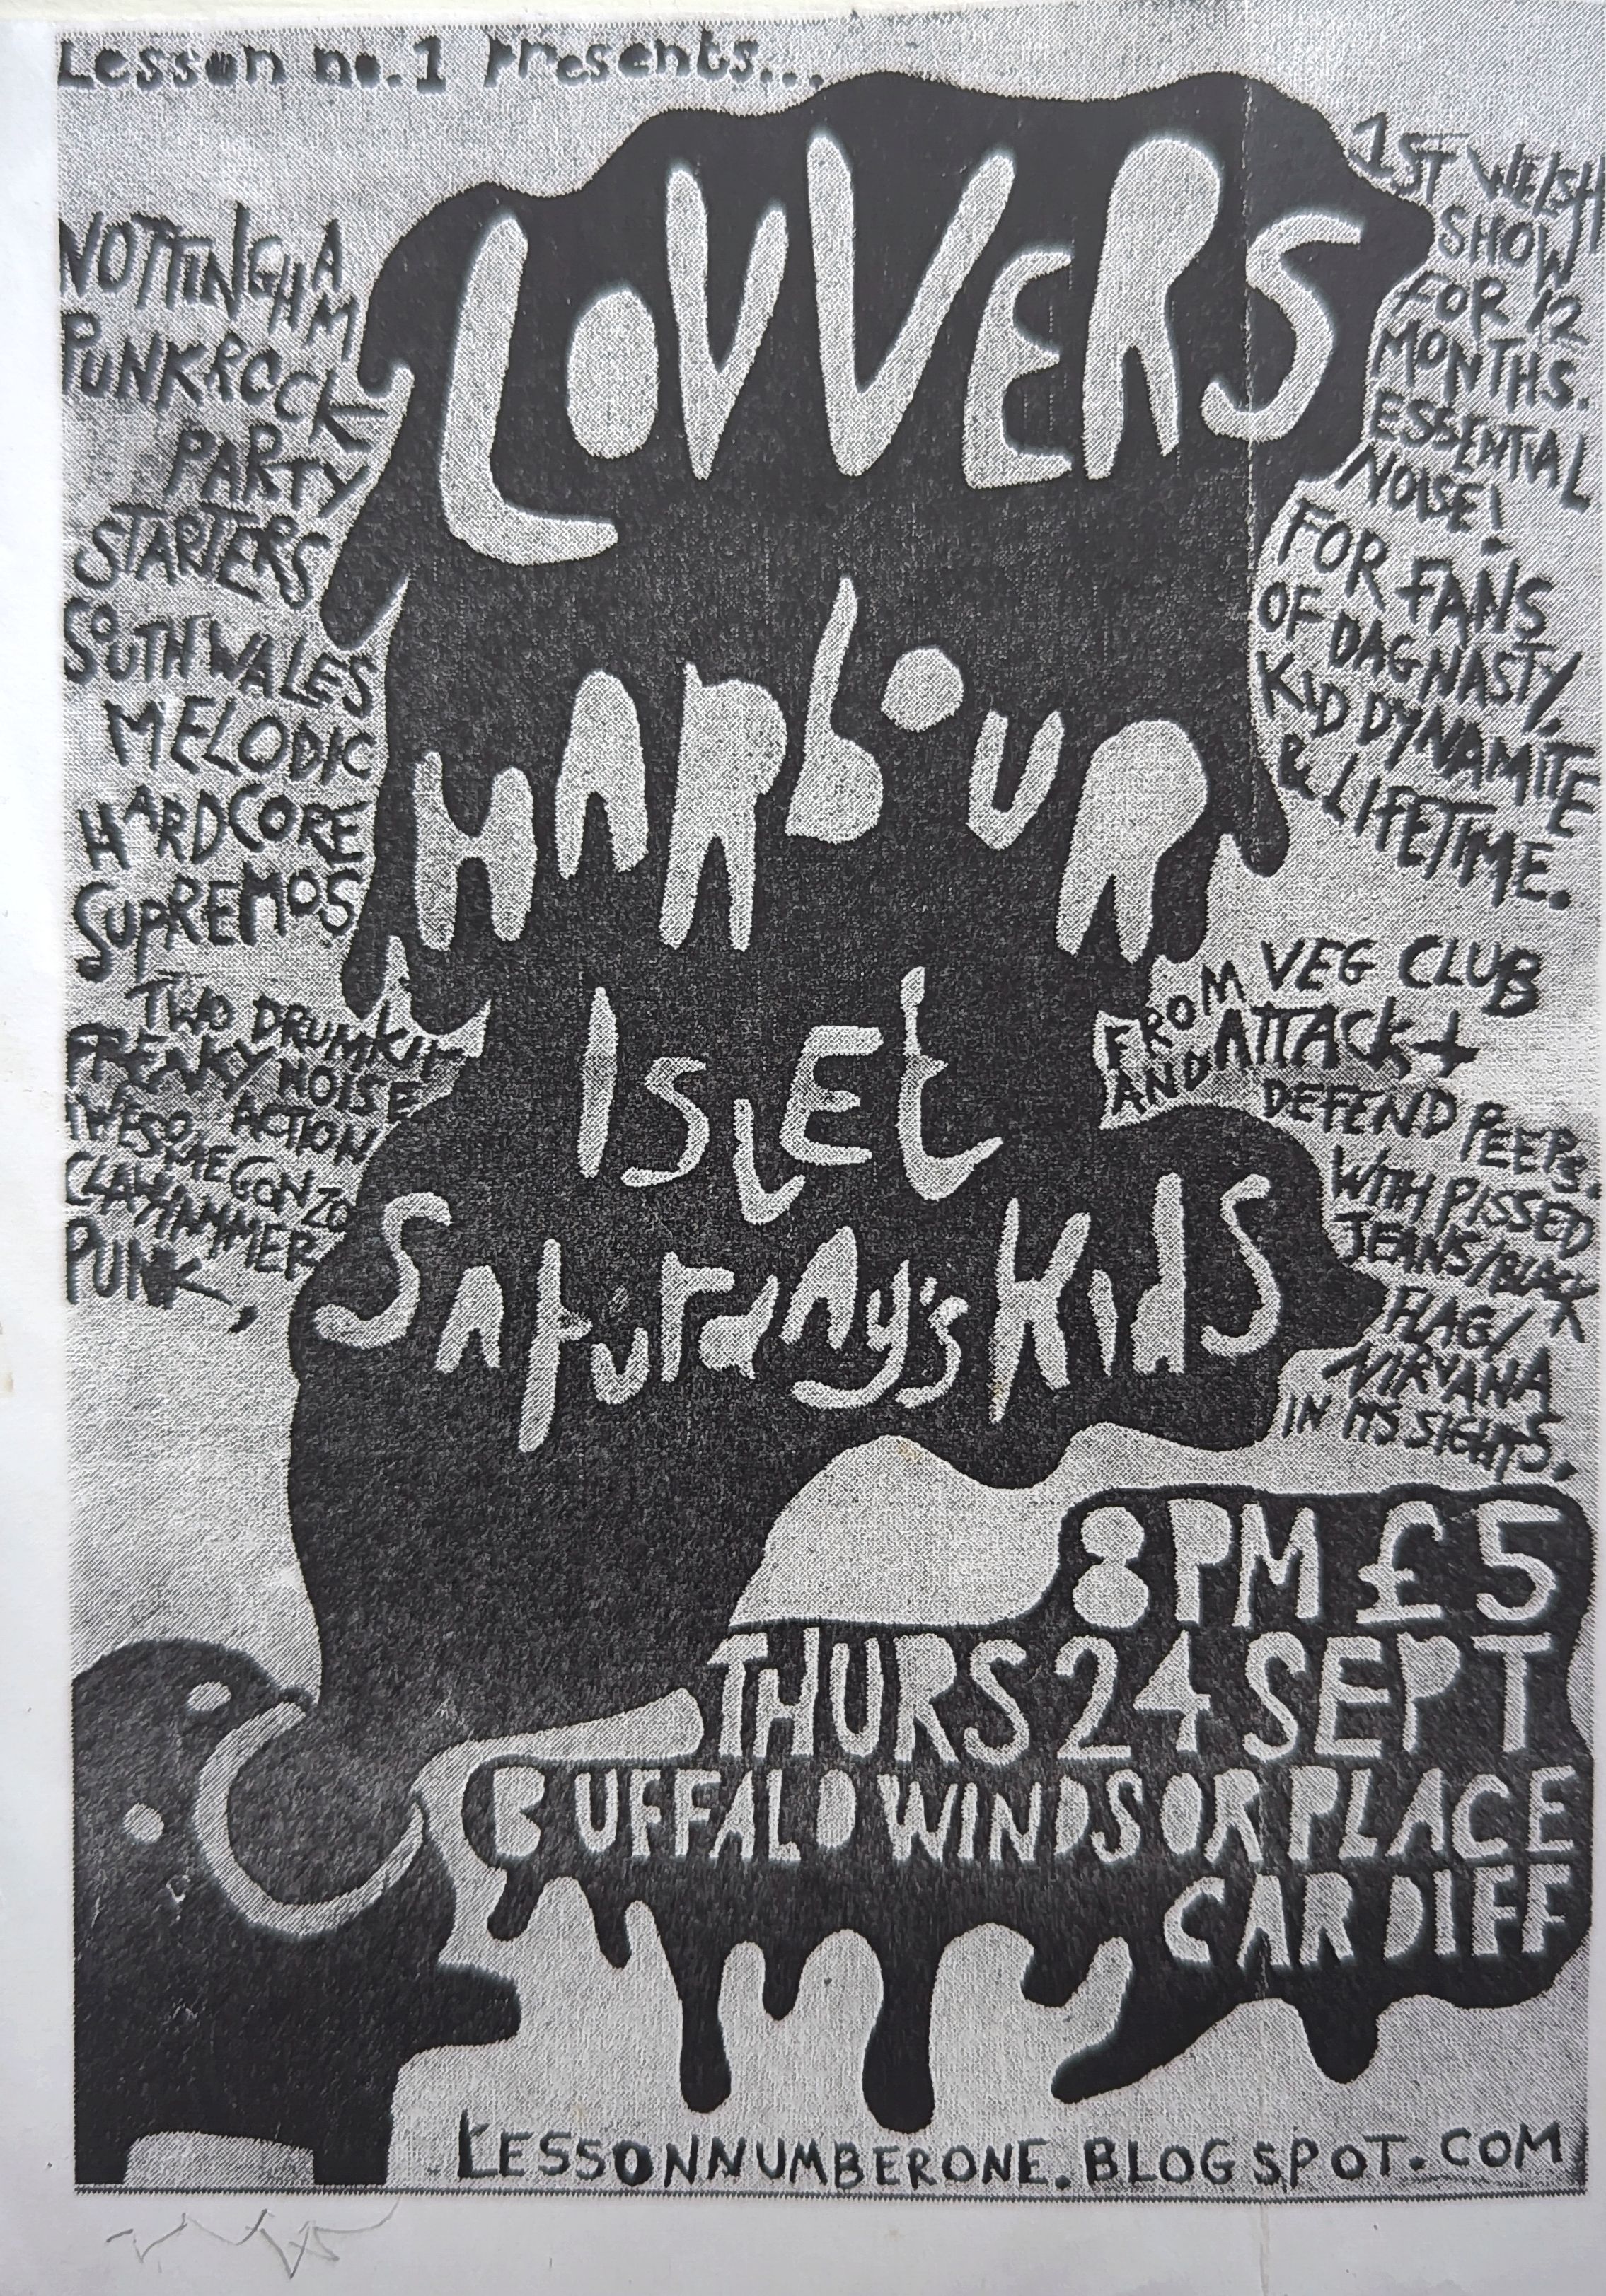 Lesson no.1 presents...
LOVVERS
NOTTINGHAM
PUNKROCK
PARTY
STARTERS
1ST WELSH
SHOW
FOR 12
MONTHS.
ESSENTIAL
NOISE!
HARBOUR
SOUTH WALES
MELODIC
HARDCORE
SUPREMOS
FOR FANS
OF DAG NASTY,
KID DYNAMITE
& LIFETIME.
ISLET
TWO DRUMKIT
FREAKY NOISE
ACTION
FROM VEG CLUB
AND ATTACK +
DEFEND PEEPS.
SATURDAY'S KIDS
AWESOME GONZO
CLAWHAMMER
PUNK,
WITH PISSED
JEANS/BLACK
FLAG/
NIRVANA
IN ITS SIGHTS.
8PM £5
THURS 24 SEPT
BUFFALO WINDSOR PLACE
CARDIFF
LESSONNUMBERONE.BLOGSPOT.COM